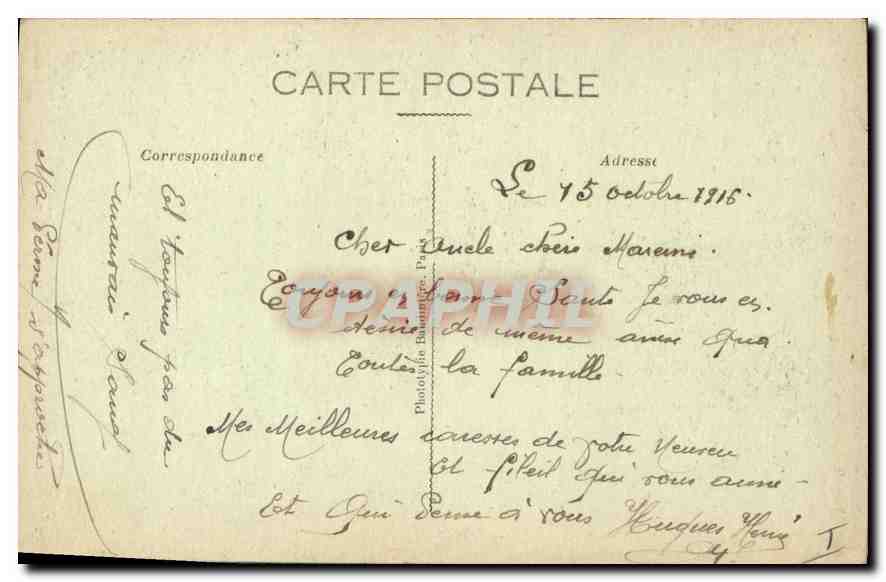 CARTE POSTALE
Correspondance
Adresse
Le 15 octobre 1916.
Cher oncle chère Maraine.
Toujours en bonne Santé Je vous en
desire de même ainsi qua
toutes la famille
Mes Meilleures caresses de votre Neuveu
et fileil qui vous aime -
Et Qui Pense à vous Hugues Henri
Et toujours pas du
mauvais Sang
Ma Perme s'approche
Phototypie Baudinière, Paris
CPAPHIL
I